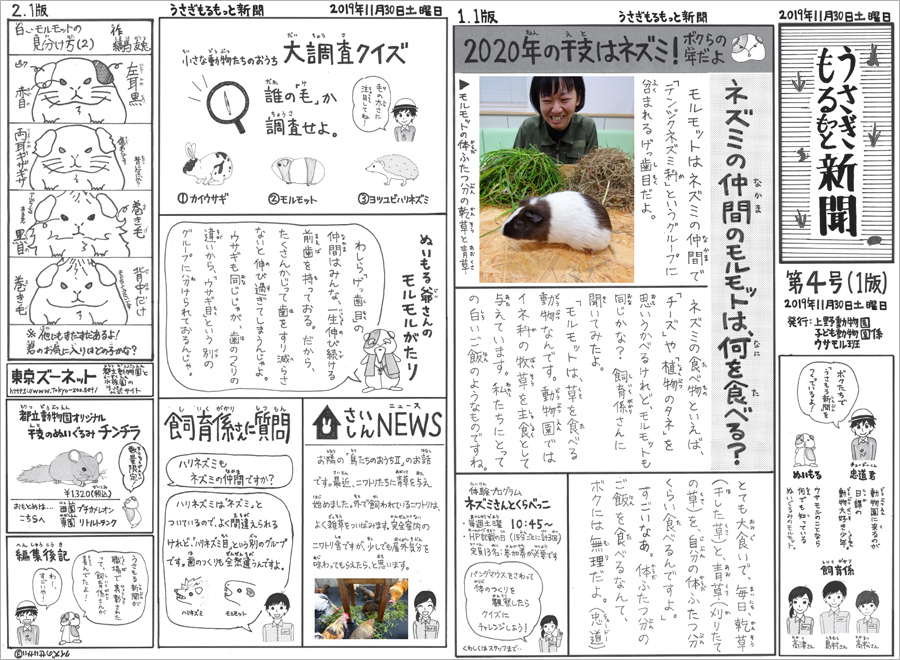 1.1版
うさぎもるもっと新聞
2019年11月30日土曜日
うさぎ
もるもっと
新聞
第4号(1版)
2019年11月30日土曜日
発行:上野動物園
子ども動物園係
ウサモル班
2020年の干支はネズミ!
ボクらの
年だよ
ネズミの仲間のモルモットは、何を食べる?
モルモットはネズミの仲間で
「テンジクネズミ科」というグループに
含まれる。げっ歯目だよ。
▶モルモットの体ふたつ分の乾草と青草
ネズミの食べ物といえば、
「チーズ」や「植物のタネ」を
思いうかべるけれど、モルモットも
同じかな?飼育係さんに
聞いてみたよ。
「モルモットは、草を食べる
動物なんです。動物園では
イネ科の牧草を主食として
与えています。私たちにとって
の白いご飯のようなものですね。
とても大食いで、毎日、乾草
(干した草)と、青草(刈りたて
の草)を、自分の体ふたつ分
くらい食べるんですよ。」
すごいなあ。体ふたつ分の
ご飯を食べるなんて、
ボクには無理だよ。(忠道)
体験プログラム
ネズミさんとくらべっこ
・毎週土曜 10:45〜
・HP記載の日(15分ごとに計3回)
・定員13名:参加券が必要です
パンダマウスをさわって
体のつくりを
観察したら
クイズに
チャレンジしよう!
くわしくはスタッフまで…
ボクたちで
「うさもる新聞を
つくっているよ!
ぬいもる
忠道君
動物園に来るのが
日課の
動物大好き少年。
ウサモルのことなら
何でも知っている
ぬいぐるみのモルモット。
飼育係
高津さん
島村さん
高松さん
2.1版
うさぎもるもっと新聞
2019年11月30日土曜日
白いモルモットの
見分け方(2)
左耳黒
赤目
両耳ギザギザ
巻き毛
黒目
背中だけ
巻き毛
※他にもまだまだあるよ!
君のお気に入りはどのうかな?
小さな動物たちのおうち
大調査クイズ
誰の「毛」か
調査せよ。
毛のかたさに
注目してね!
①カイウサギ
②モルモット
③ヨツユビハリネズミ
ぬいもる爺さんの
モルモルがたり
わしら「げっ歯目」の
仲間はみんな、一生伸び続ける
前歯を持っておる。だから、
たくさんかじって歯をすり減らさ
ないと伸び過ぎてしまうんじゃよ。
ウサギも同じじゃが、歯のつくりの
違いから、「ウサギ目」という別の
グループに分けられておるんじゃ。
東京ズーネット
都立動物園と
水族園の
公式サイト
https://www.tokyo-zoo.net/
都立動物園オリジナル
干支のぬいぐるみ チンチラ
数量限定!
¥1,320(税込)
おもとめは…
こちらへ
西園 プチカメレオン
東園 リトルトランク
編集後記
「うさもる新聞が
職場で表彰された
って、飼育係さんが
喜んでたよ!」
わしらも
うれしいのう。
飼育係さんに質問
ハリネズミも
ネズミの仲間ですか?
ハリネズミは「ネズミ」と
ついているので、よく間違えられる
けれど、「ハリネズミ目」という別のグループ
です。歯のつくりも全然違うんですよ。
ハリネズミ
モルモット
さいしんNEWS
ニュース
お隣の「鳥たちのおうちⅡ」のお話
です。最近、ニワトリたちに青草を与え
始めました。外で飼われているニワトリは、
よく雑草をついばみます。完全室内の
ニワトリ舎ですが、少しでも屋外気分を
味わってもらえたら、と思います。